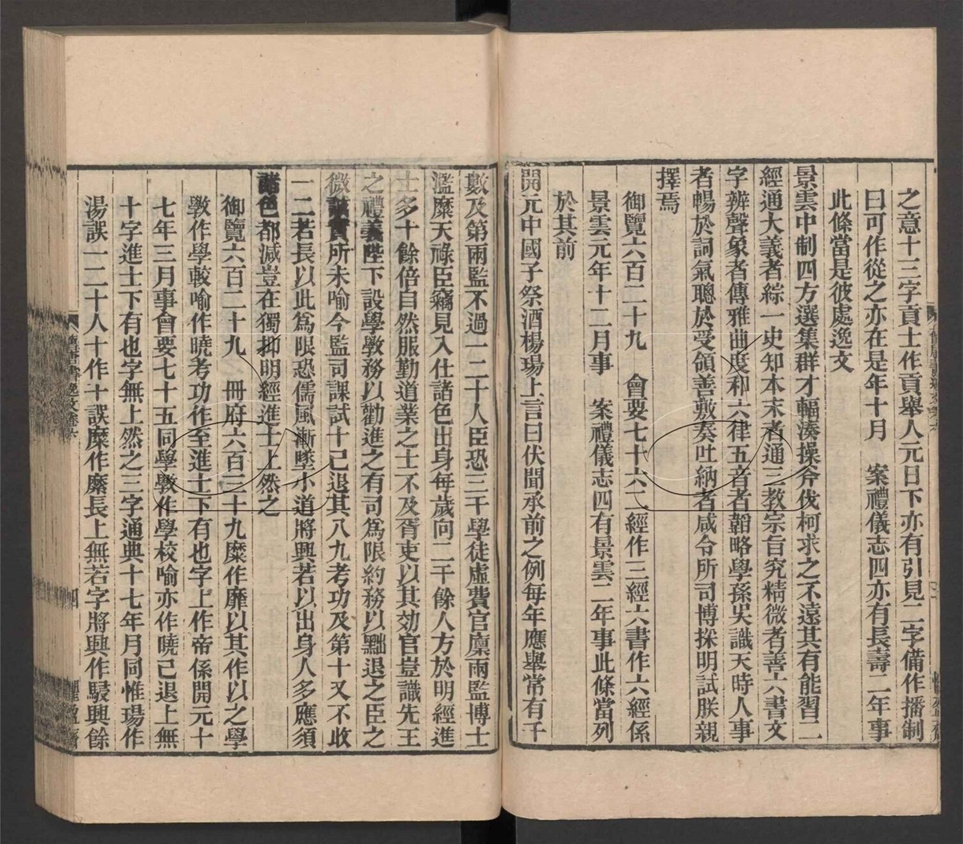 之意十三字貢士作貢舉人元日下亦有引見二字備作播制
曰可作從之亦在是年十月 案禮儀志四亦有長壽二年事
此條當是彼處逸文
景雲中制四方選集群才輻湊操斧伐柯求之不遠其有能習二
經通大義者綜一史知本末者通三教宗旨究精微者善六書文
字辨聲象者傳雅曲度和六律五音者韜略學孫吳識天時人事
者暢於詞氣聰於受領善敷奏吐納者咸令所司博採明試朕親
擇焉
御覽六百二十九 會要七十六二經作三經六書作六經係
景雲元年十二月事 案禮儀志四有景雲二年事此條當列
於其前
開元中國子祭酒楊瑒上言曰伏聞承前之例每年應舉常有千
數及第兩監不過一二十人臣恐三千學徒虛費官廩兩監博士
濫糜天祿臣竊見入仕諸色出身每歲向二千餘人方於明經進
士多十餘倍自然服勤道業之士不及胥吏以其効官豈識先王
之禮義陛下設學敎務以勸進之有司爲限約務以黜退之臣之
微 所未喻今監司課試十已退其八九考功及第十又不收
一二若長以此爲限恐儒風漸墜小道將興若以出身人多應須
諸色都減豈在獨抑明經進士上然之
御覽六百二十九 冊府六百三十九糜作靡以其作以之學
敎作學較喻作曉考功作至進士下有也字上作帝係開元十
七年三月事會要七十五同學敎作學校喻亦作曉已退上無
十字進士下有也字無上然之三字通典十七年月同惟瑒作
湯誤一二十人十作千誤糜作縻長上無若字將興作駸興餘